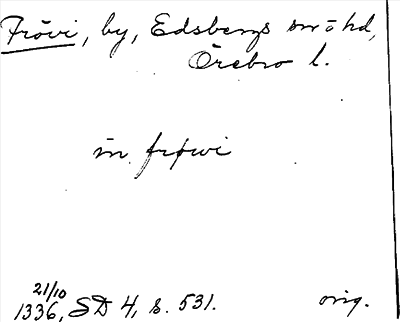 Frövi, by, Edsbergs sn o hd,
Örebro l.
in frøwi
21/10
1336, SD 4, s. 531. orig.